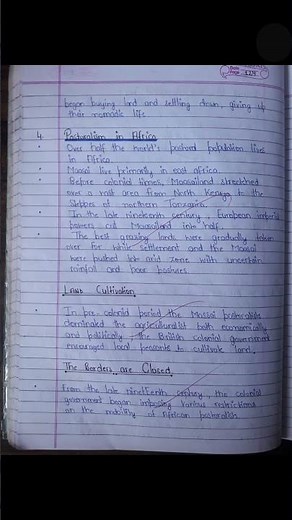 Date
Page
began buying land and settling down, giving up
their nomadic life
4. Pastoralism in Africa
Over half the world's pastoral population lives
in Africa.
Maasai live primarily in east africa.
Before colonial times, Maasailand stretched
over a vast area from North Kenya to the
Steppes of northern Tanzania.
In the late nineteenth century, European imperial
powers cut Maasailand into half.
The best grazing lands were gradually taken
over for white settlement and the Maasai
were pushed into arid zone with uncertain
rainfall and poor pastures.
Land Cultivation
In pre-colonial period the Maasai pastoralists
dominated the agriculturalist both economically
and politically. The British colonial government
encouraged local peasants to cultivate land.
The Borders are Closed.
From the late nineteenth century, the colonial
government began imposing various restrictions
on the mobility of African pastoralists.